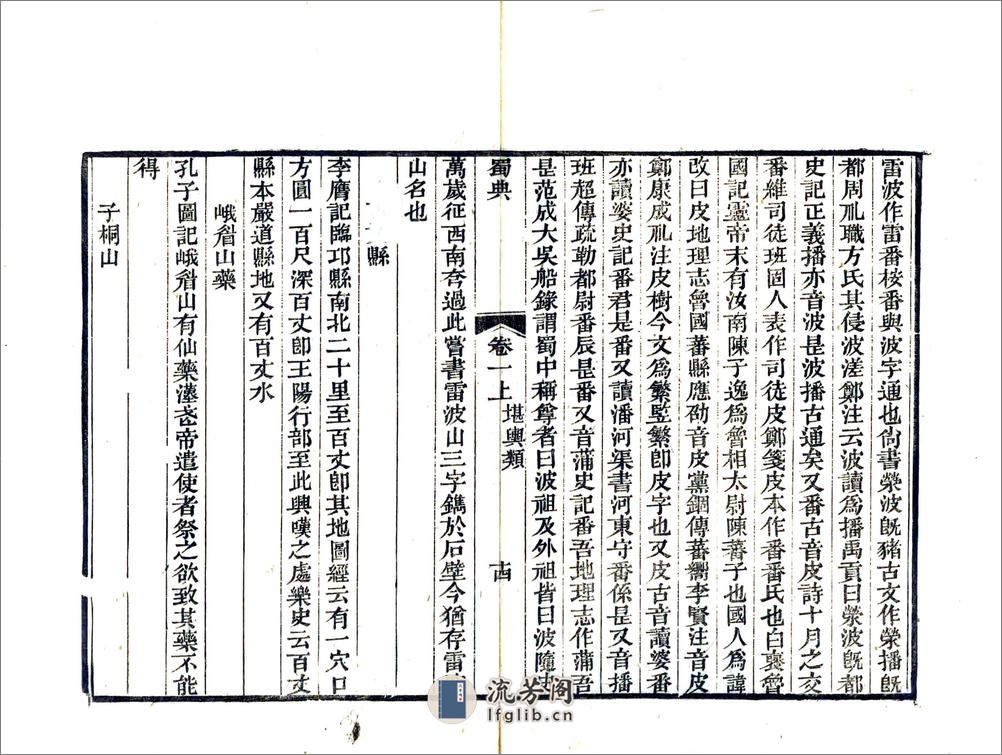 雷波作雷番桉番與波字通也尙書滎波旣豬古文作滎播旣
都周礼職方氏其侵波溠鄭注云波讀爲播禹貢曰滎波旣都
史記正義播亦音波是波播古通矣又番古音皮詩十月之交
番維司徒班固人表作司徒皮鄭箋皮本作番番氏也白襃魯
國記靈帝末有汝南陳子逸爲魯相太尉陳蕃子也國人爲諱
改曰皮地理志魯國蕃縣應劭音皮黨錮傳蕃嚮李賢注音皮
鄭康成礼注皮樹今文爲繁豎繁卽皮字也又皮古音讀婆番
亦讀婆史記番君是番又讀潘河渠書河東守番係是又音播
班超傳疏勒都尉番辰是番又音蒲史記番吾地理志作蒲吾
是范成大吳船錄謂蜀中稱尊者曰波祖及外祖皆曰波隨史
蜀典 卷一上 堪輿類 十四
萬歲征西南夸過此嘗書雷波山三字鐫於石壁今猶存雷
山名也
縣
李膺記臨邛縣南北二十里至百丈卽其地圖經云有一穴口
方圓一百尺深百丈卽王陽行部至此興嘆之處樂史云百丈
縣本嚴道縣地又有百丈水
峨眉山藥
孔子圖記峨眉山有仙藥漢武帝遣使者祭之欲致其藥不能
得
子桐山
流芳阁
lfglib.cn